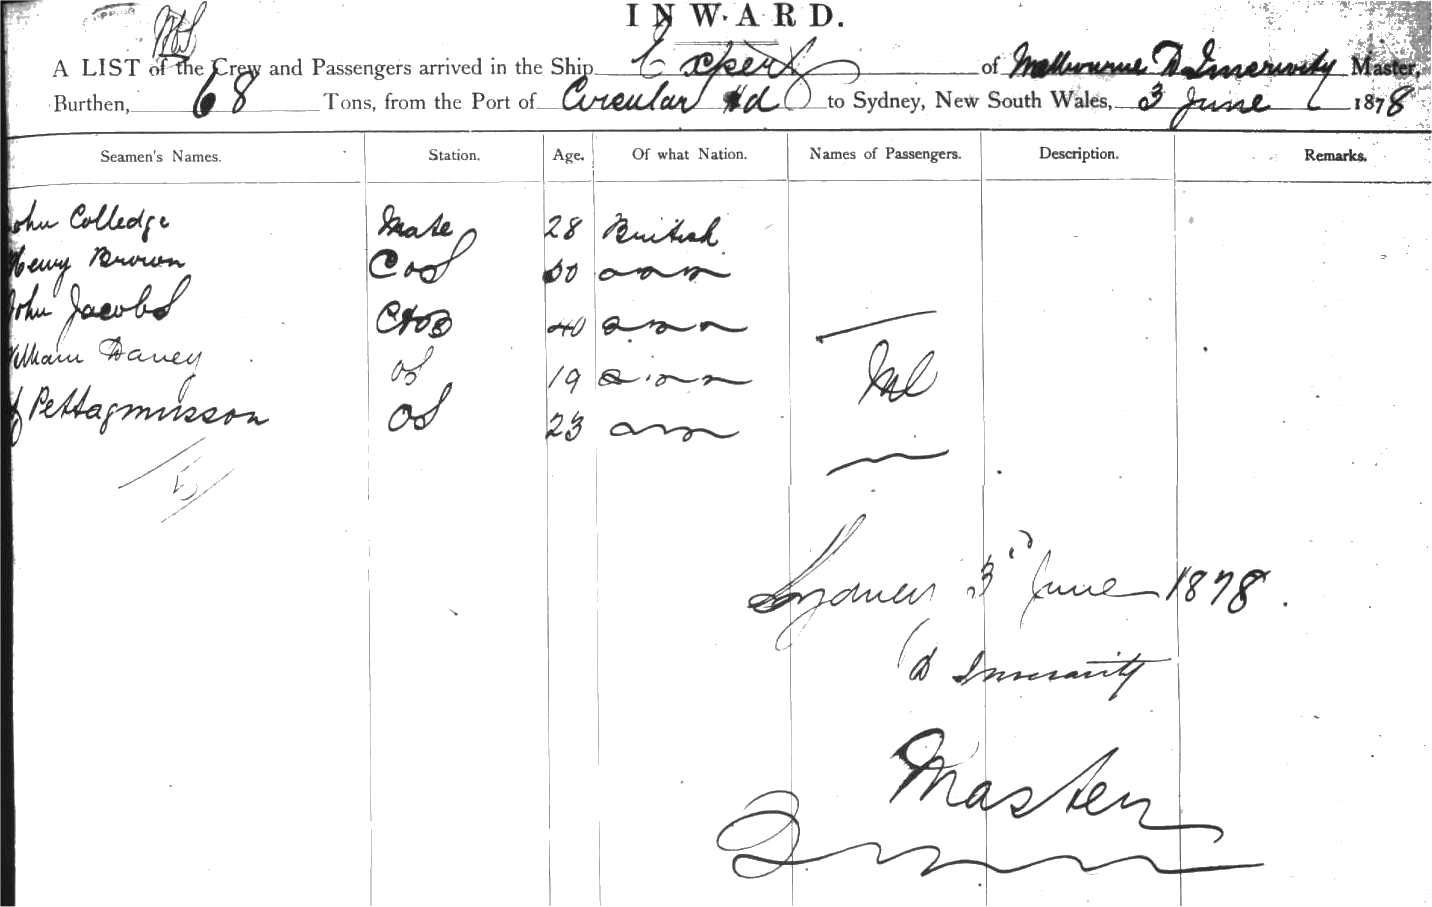 INWARD.
A LIST of the Crew and Passengers arrived in the Ship Expert of Melbourne D Inverarity Master,
Burthen, 68 Tons, from the Port of Circular Hd to Sydney, New South Wales, 3 June 1878
Seamen's Names. Station. Age. Of what Nation. Names of Passengers. Description. Remarks.
John Colledge Mate 28 British
Henry Brown 30
John Jacobs 40
William Davey OS 19
Pettagmusson OS 23
Sydney 3rd June 1878.
D Inverarity
Master